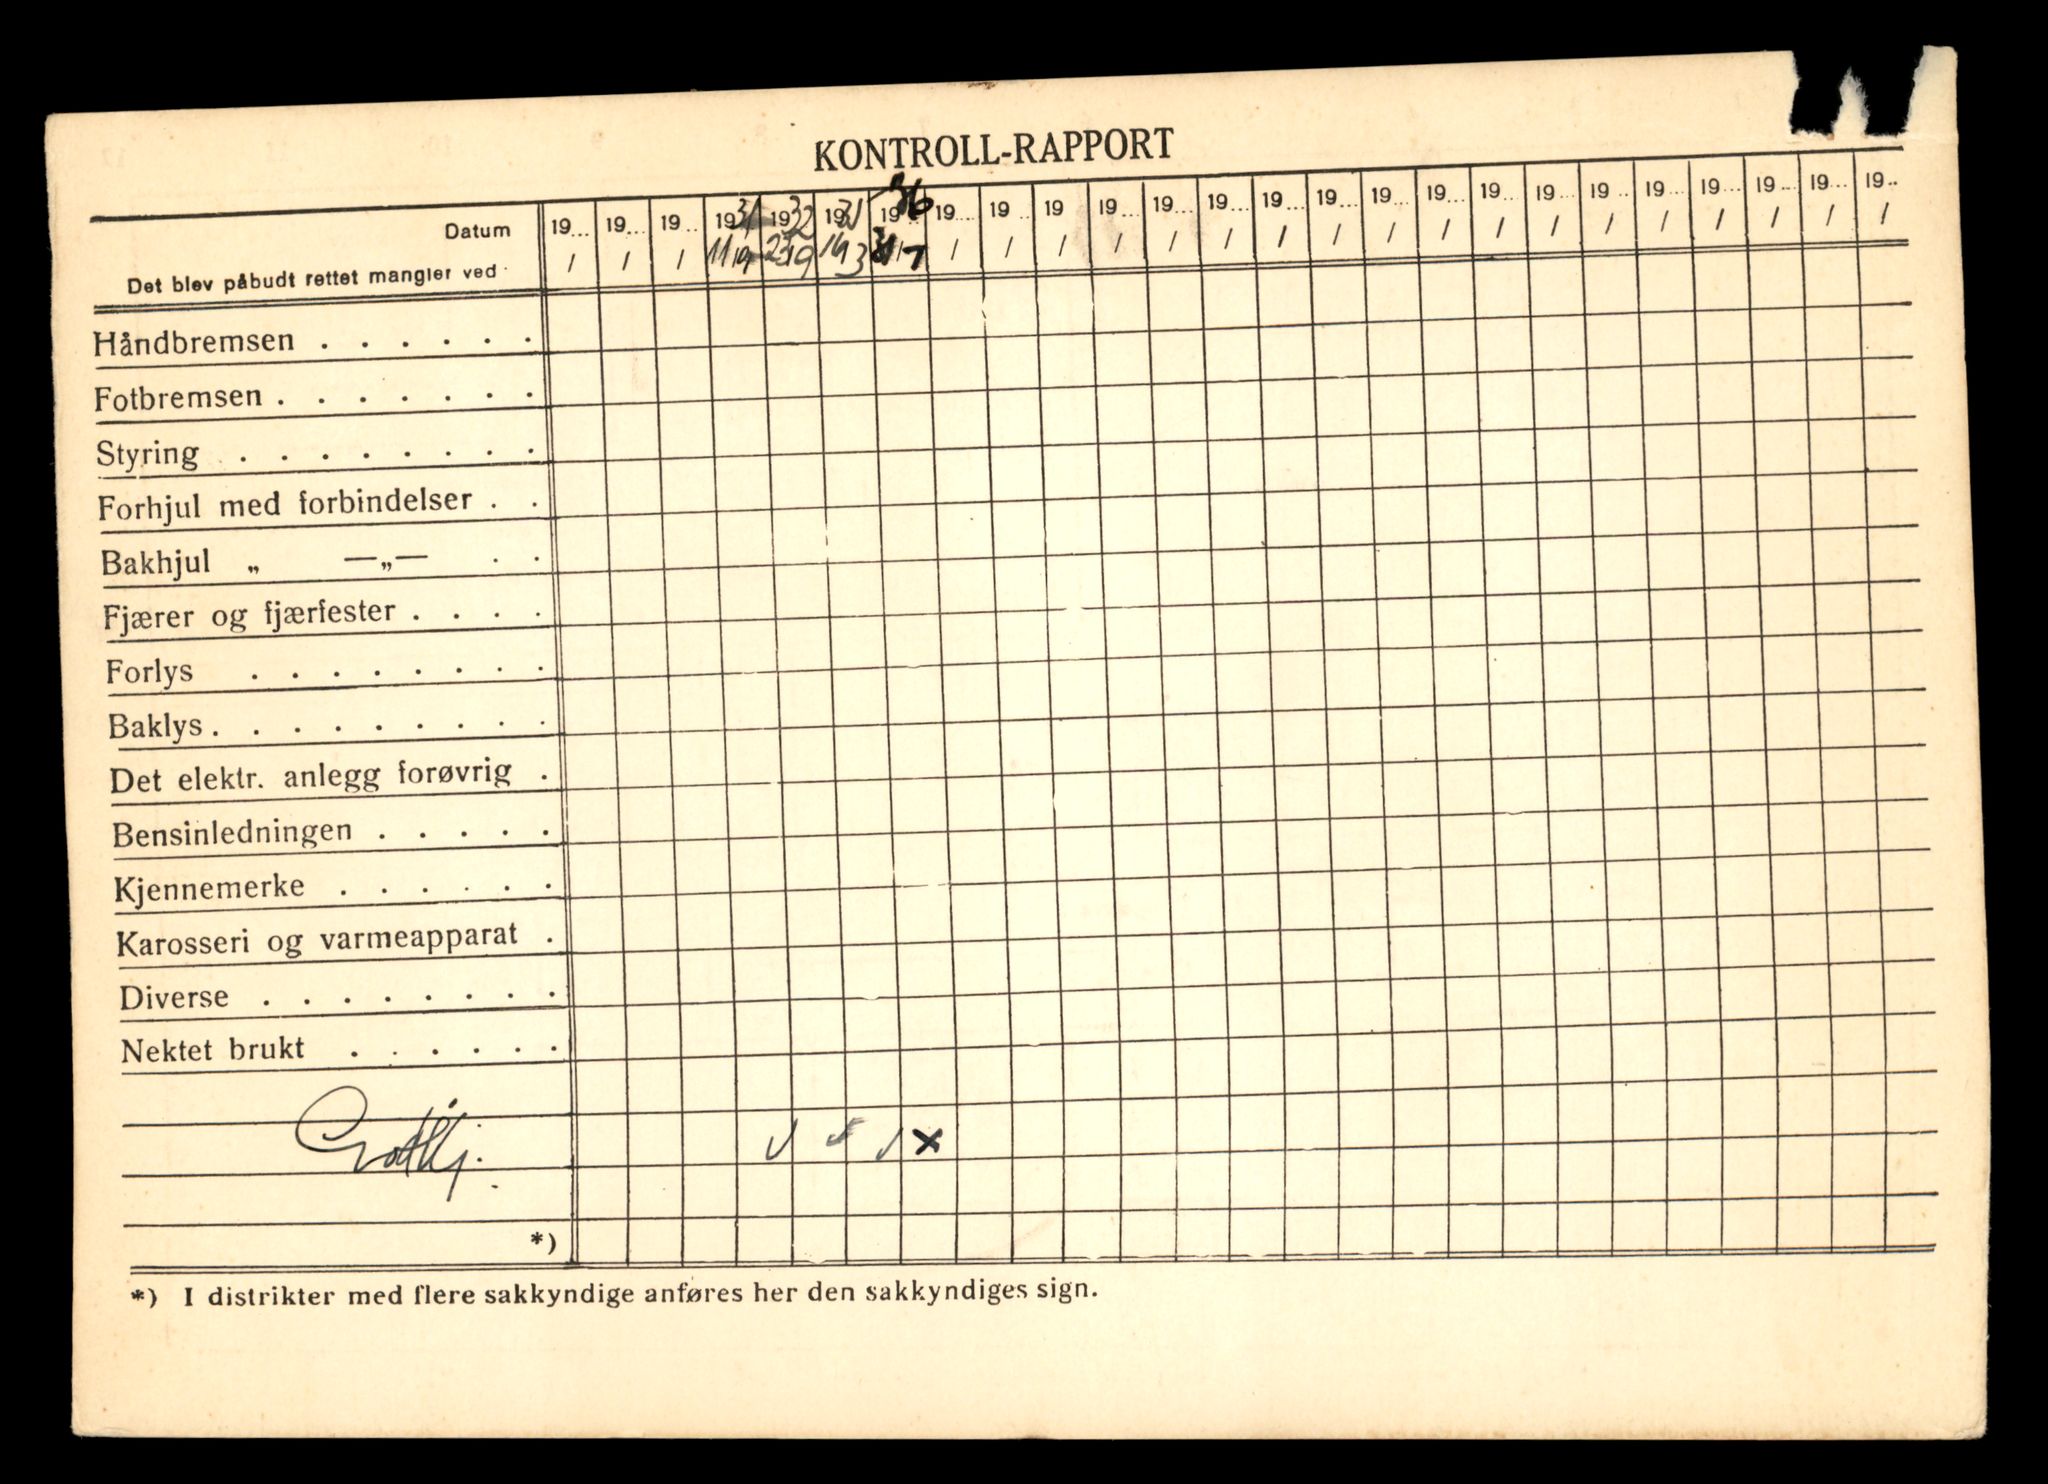 KONTROLL-RAPPORT
Datum 19... 19... 19... 1931 1932 1931 1936 19... 19 19 19... 19... 19... 19... 19... 19... 19... 19... 19... 19... 19... 19... 19... 19... 19..
Det blev påbudt rettet mangler ved / / / 11/9 /9 3 /7 / / / / / / / / / / / / / / / / / /
Håndbremsen . . . . . .
Fotbremsen . . . . . . .
Styring . . . . . . . .
Forhjul med forbindelser . .
Bakhjul „ —„— . .
Fjærer og fjærfester . . . .
Forlys . . . . . . . .
Baklys . . . . . . . . .
Det elektr. anlegg forøvrig .
Bensinledningen . . . . .
Kjennemerke . . . . . .
Karosseri og varmeapparat .
Diverse . . . . . . . .
Nektet brukt . . . . . .
Godkj.
*)
*) I distrikter med flere sakkyndige anføres her den sakkyndiges sign.